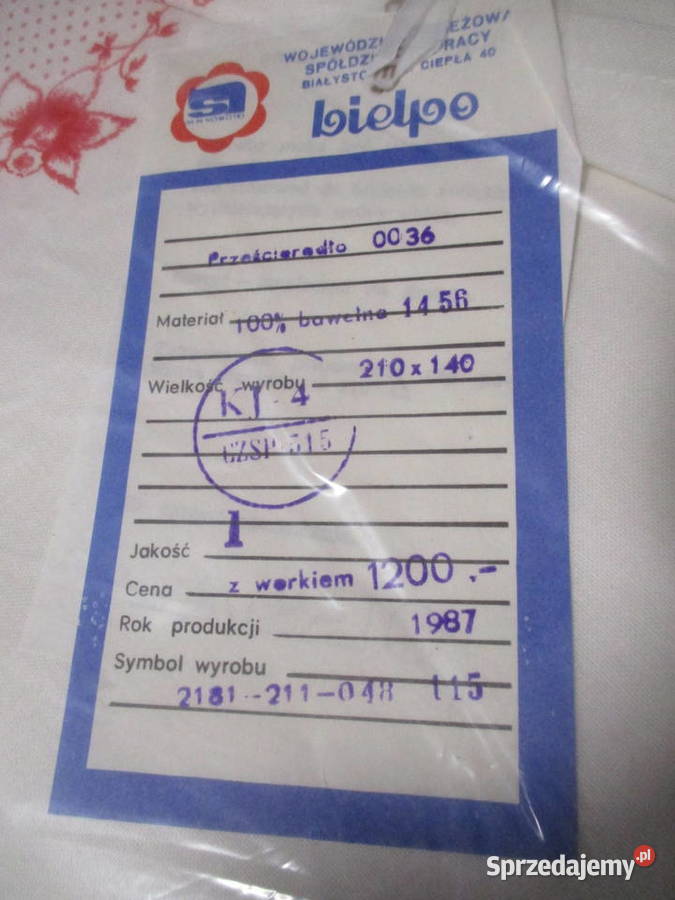 WOJEWÓDZ EŻOWA
SPÓŁDZ PRACY
BIAŁYSTO CIEPŁA 40
bielpo
Prześcieradło 0036
Materiał 100% bawełna 1456
Wielkość wyrobu 210 x 140
KJ 4
CZSP 515
Jakość 1
Cena z workiem 1200.-
Rok produkcji 1987
Symbol wyrobu
2181-211-048 115
Sprzedajemy.pl